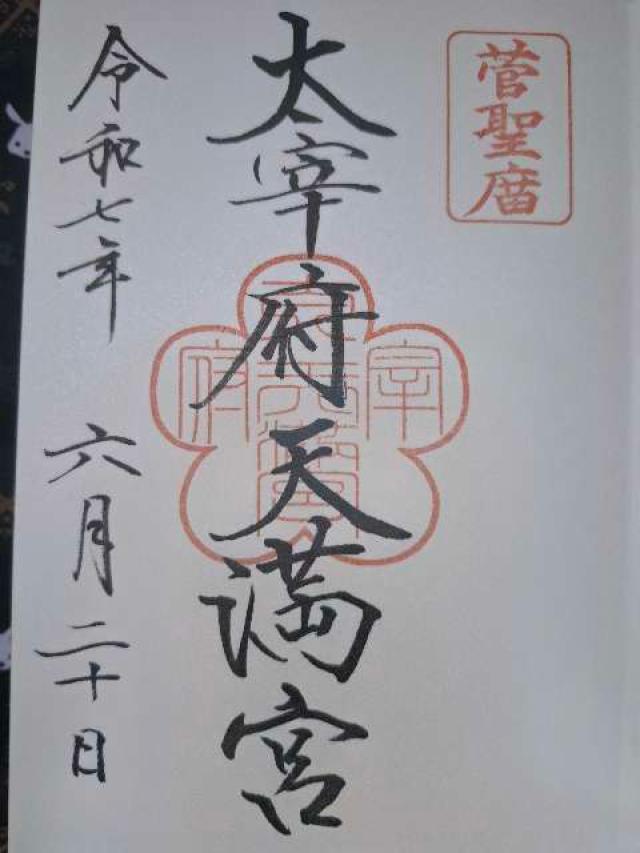 菅聖廟
太宰府天満宮
令和七年 六月二十日